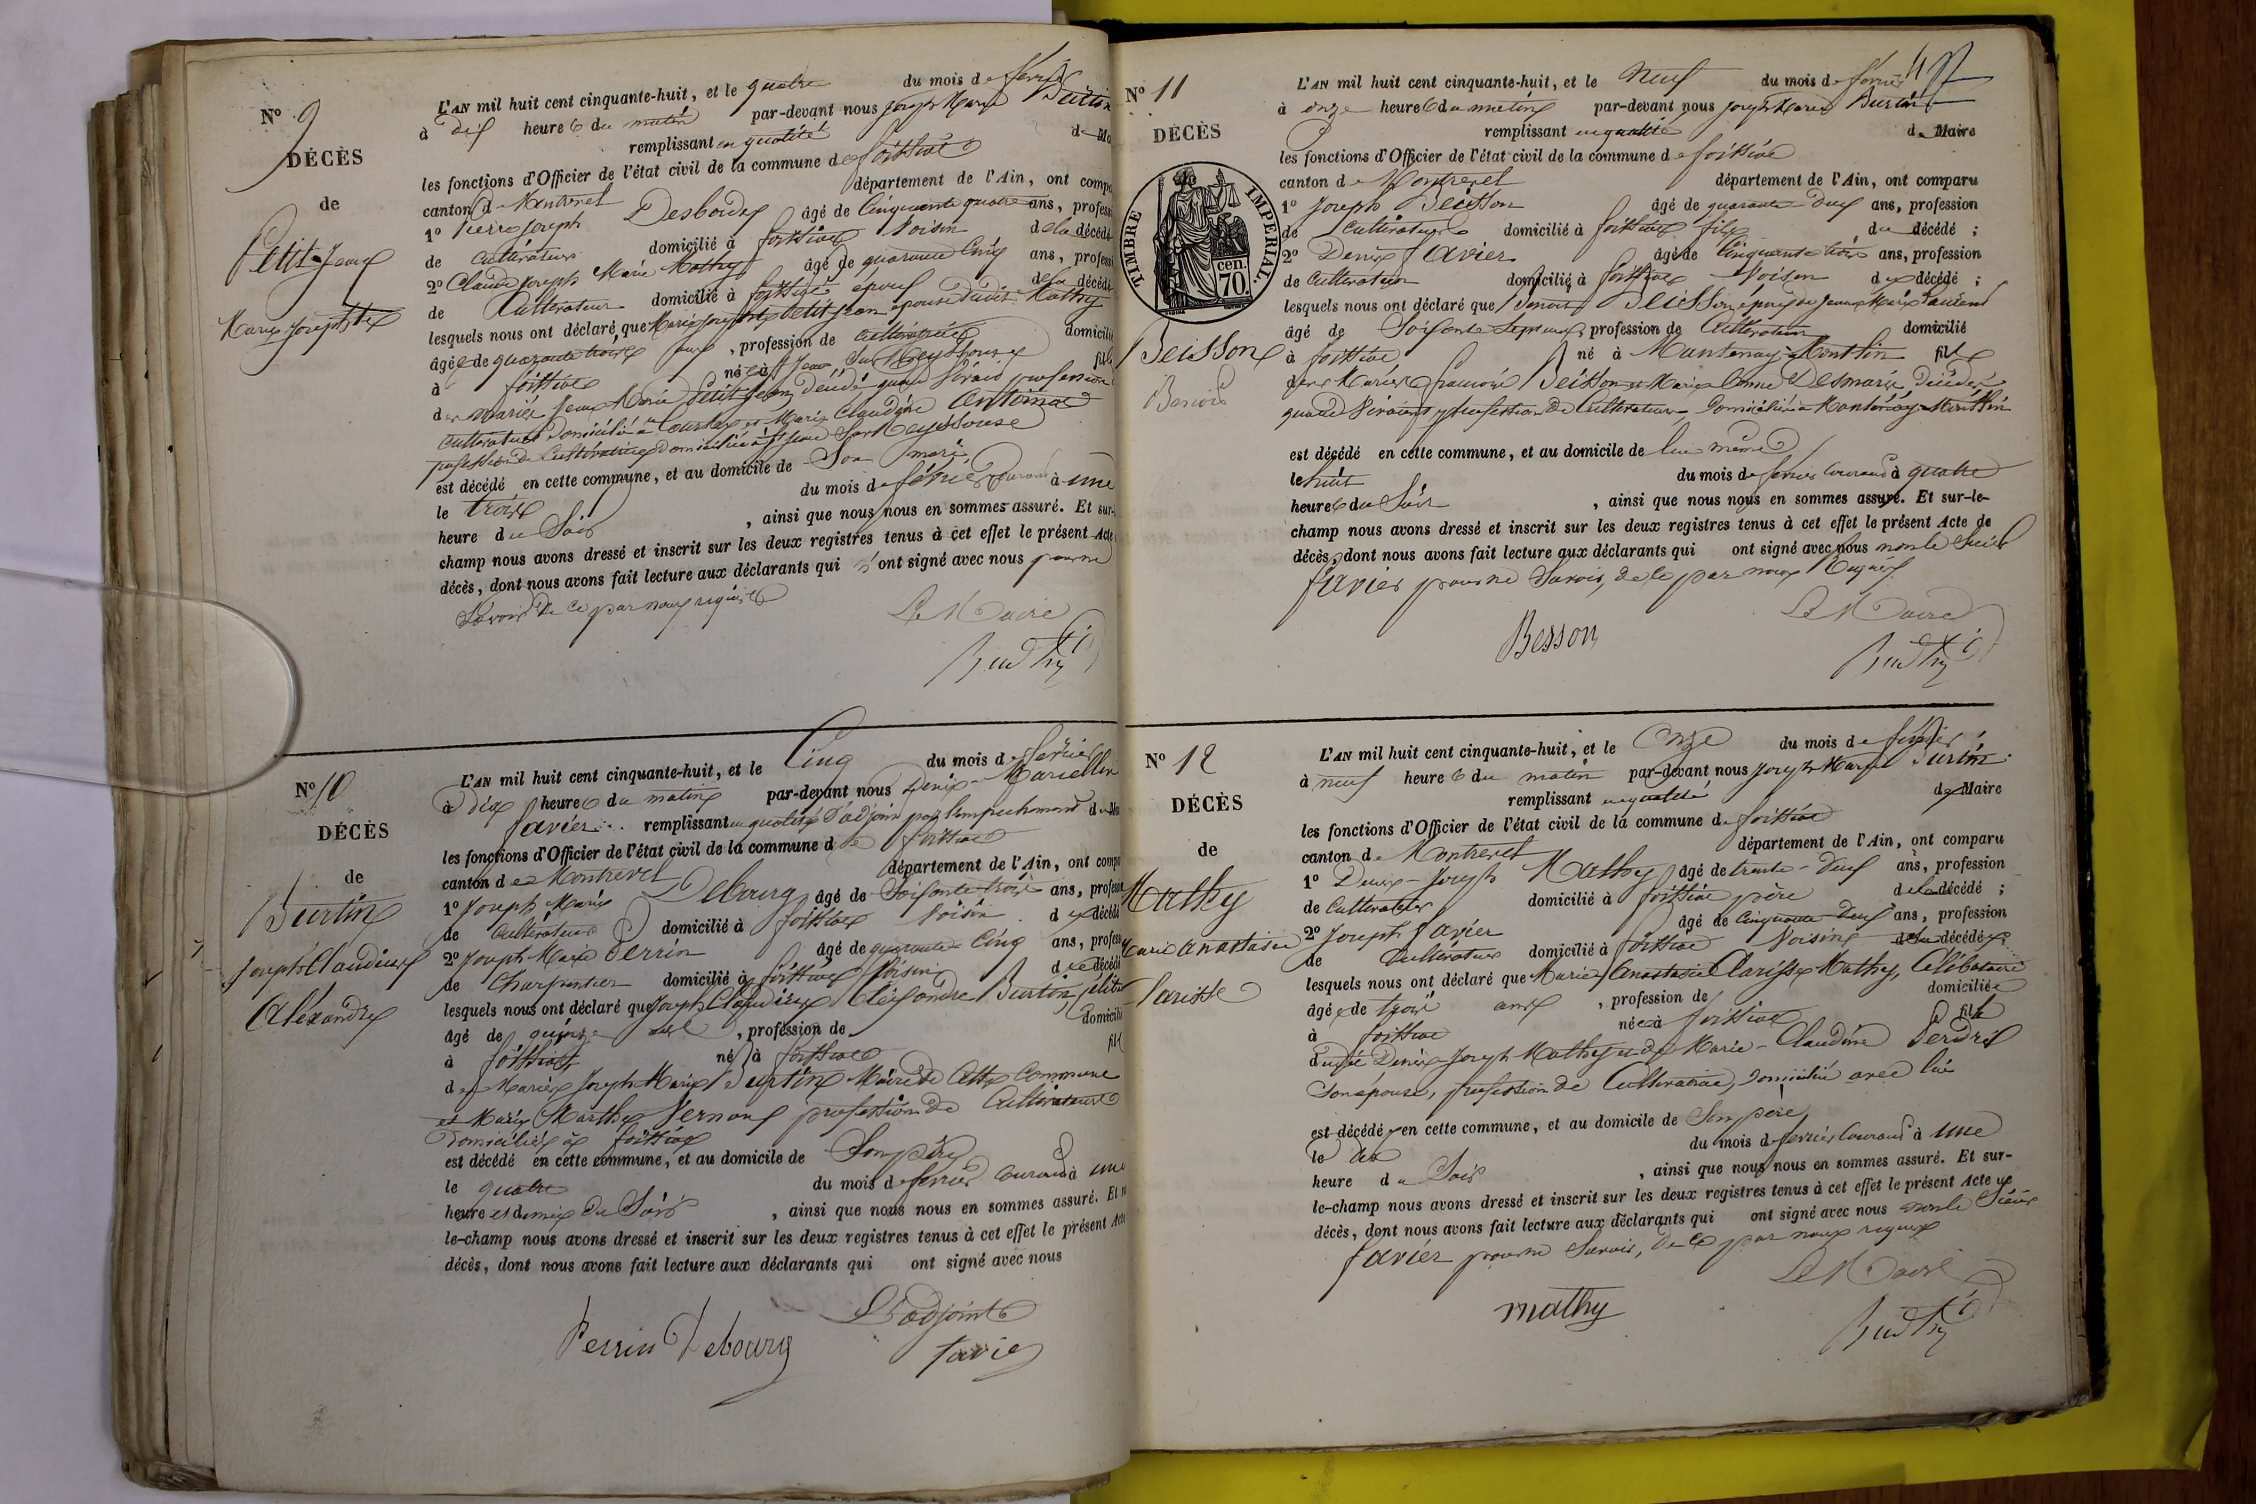 N° 9
DÉCÈS
de
Petit-Jean
Marie Josephte
L'AN mil huit cent cinquante-huit, et le quatre du mois de février
à dix heures du matin par-devant nous Joseph Marie Burtin
remplissant en qualité de Ma
les fonctions d'Officier de l'état civil de la commune de foissiat
canton de Montrevel département de l'Ain, ont compa
1° Pierre Joseph Desbourg âgé de Cinquante quatre ans, profess
de Cultivateur domicilié à foissiat Voisin de la décédé
2° Claude Joseph Marie Mathy âgé de quarante Cinq ans, professi
de Cultivateur domicilié à foissiat époux de la décédé
lesquels nous ont déclaré que Marie Josephte Petit Jean épouse dudit Mathy
âgée de quarante trois ans, profession de Cultivatrice domicilié
à foissiat née à St Jean Sur Reyssouze fille
des mariés Jean Marie Petit Jean décédé quand vivait profession
Cultivateur domicilié à Courtes et Marie Claudine Antoinat
profession de Cultivatrice domiciliée à St Jean Sur Reyssouze
est décédé en cette commune, et au domicile de Son mari
le trois du mois de février Courant à une
heure du Soir, ainsi que nous nous en sommes assuré. Et sur-
champ nous avons dressé et inscrit sur les deux registres tenus à cet effet le présent Acte
décès, dont nous avons fait lecture aux déclarants qui n'ont signé avec nous pour ne
Savoir de ce par nous requis
Le Maire
N° 10
DÉCÈS
de
Burtin
Joseph Claudius
Alexandre
L'AN mil huit cent cinquante-huit, et le Cinq du mois de février
à Dix heures du matin par-devant nous Denis-Marcellin
favier remplissant en qualité d'adjoint par Empechement du Ma
les fonctions d'Officier de l'état civil de la commune de foissiat
canton de Montrevel département de l'Ain, ont compa
1° Joseph Marie Debourg âgé de Soixante trois ans, profession
de Cultivateur domicilié à foissiat Voisin du décédé
2° Joseph Marie Perrin âgé de quarante Cinq ans, profess
de Charpentier domicilié à foissiat Voisin du décédé
lesquels nous ont déclaré que Joseph Claudius Alexandre Burtin
âgé de quinze ans, profession de domicilié
à foissiat né à foissiat fils
des Mariés Joseph Marie Burtin Maire de Cette Commune
et Marie Marthe profession de Cultivateurs
Domiciliés à foissiat
est décédé en cette commune, et au domicile de Son père
le quatre du mois de février courant à une
heure et demie du Soir, ainsi que nous nous en sommes assuré. Et
le-champ nous avons dressé et inscrit sur les deux registres tenus à cet effet le présent Acte
décès, dont nous avons fait lecture aux déclarants qui ont signé avec nous
L'adjoint
Perrin Debourg favier
N° 11
DÉCÈS
TIMBRE IMPÉRIAL.
70 cen.
Beisson
Benoit
L'AN mil huit cent cinquante-huit, et le Neuf du mois de février
à onze heures du matin par-devant nous Joseph Marie Burtin
remplissant en qualité de Maire
les fonctions d'Officier de l'état civil de la commune de foissiat
canton de Montrevel département de l'Ain, ont comparu
1° Joseph Beisson âgé de quarante-deux ans, profession
de Cultivateur domicilié à foissiat fils du décédé ;
2° Denis favier âgé de Cinquante trois ans, profession
de Cultivateur domicilié à foissiat Voisin du décédé ;
lesquels nous ont déclaré que Benoit Beisson époux de Jeanne Marie
âgé de Soixante Sept ans, profession de Cultivateur domicilié
à foissiat né à Mantenay-Montlin fils
des Mariés françois Beisson et Marie Desmaris Décédés
quand Vivaient profession de Cultivateurs, Domiciliés à Mantenay-Montlin
est décédé en cette commune, et au domicile de lui même
le huit du mois de février Courant à quatre
heures du Soir, ainsi que nous nous en sommes assuré. Et sur-le-
champ nous avons dressé et inscrit sur les deux registres tenus à cet effet le présent Acte de
décès, dont nous avons fait lecture aux déclarants qui ont signé avec nous non le Sieur
favier pour ne Savoir, de ce par nous Requis
Le Maire
Besson
N° 12
DÉCÈS
de
Mathy
Marie Anastasie
Clarisse
L'AN mil huit cent cinquante-huit, et le Onze du mois de février
à neuf heures du matin par-devant nous Joseph Marie Burtin
remplissant en qualité de Maire
les fonctions d'Officier de l'état civil de la commune de foissiat
canton de Montrevel département de l'Ain, ont comparu
1° Denis-Joseph Mathy âgé de trente-deux ans, profession
de Cultivateur domicilié à foissiat père de la décédé ;
2° Joseph favier âgé de Cinquante-deux ans, profession
de Cultivateur domicilié à foissiat Voisin de la décédée
lesquels nous ont déclaré que Marie Anastasie Clarisse Mathy, Célibataire
âgée de trois ans, profession de domiciliée
à foissiat née à foissiat fille
dudit Denis-Joseph Mathy et de Marie-Claudine Perdrix
Son épouse, profession de Cultivatrice, Domiciliée avec lui
est décédé en cette commune, et au domicile de Son père
le dix du mois de février Courant à une
heure du Soir, ainsi que nous nous en sommes assuré. Et sur-
le-champ nous avons dressé et inscrit sur les deux registres tenus à cet effet le présent Acte de
décès, dont nous avons fait lecture aux déclarants qui ont signé avec nous non le Sieur
favier pour ne Savoir, de ce par nous requis
Le Maire
mathy